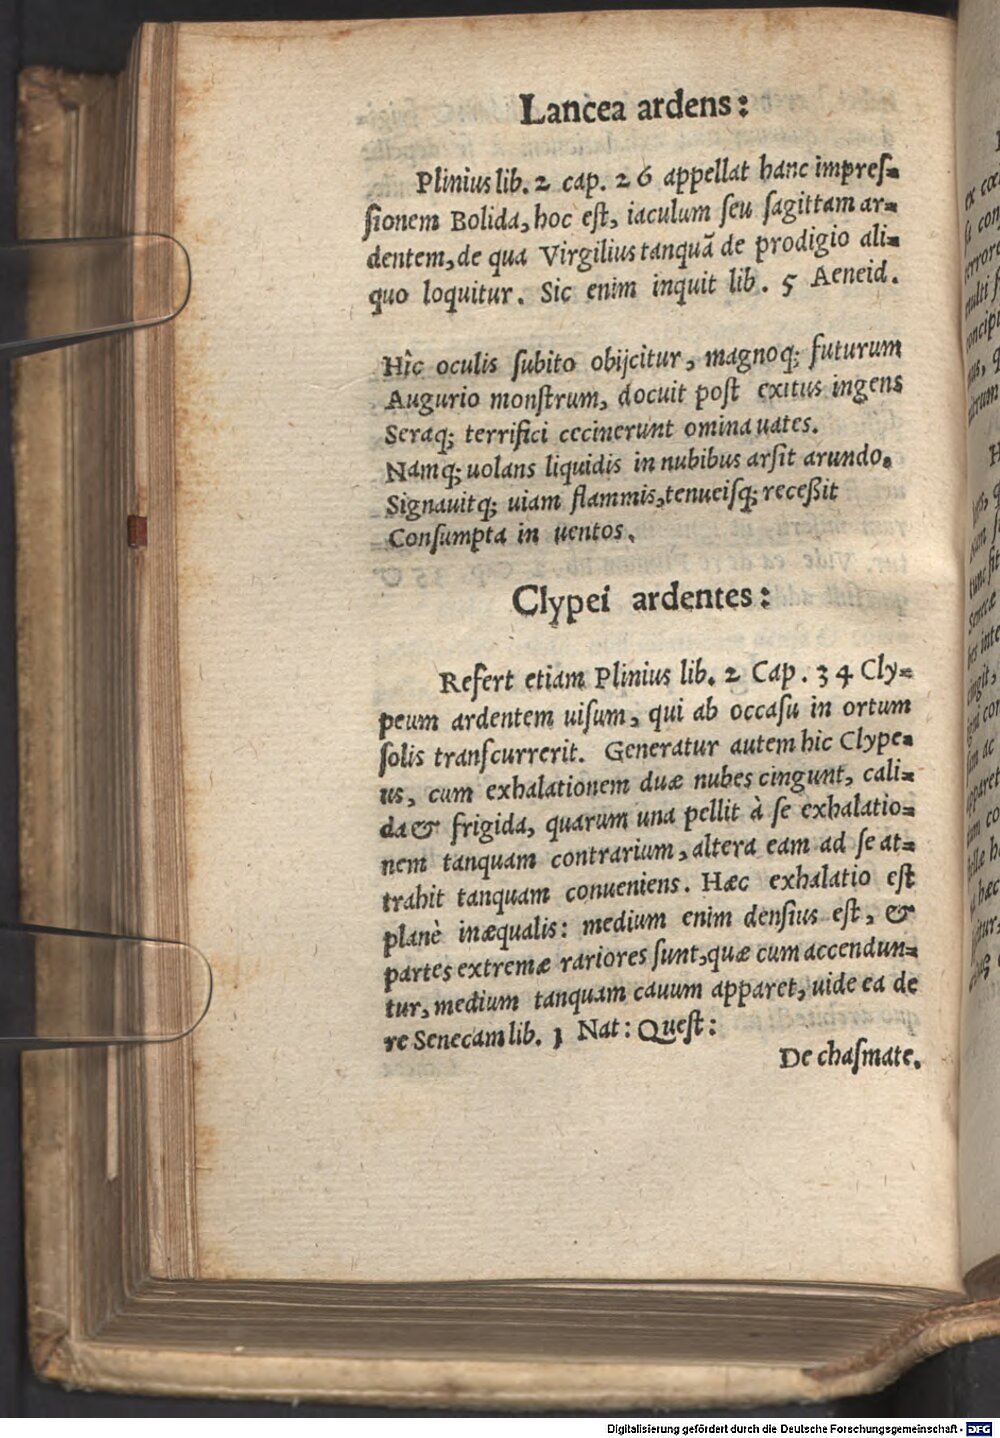 Lancea ardens:
Plinius lib. 2 cap. 26 appellat hanc impreſ=
ſionem Bolida, hoc eſt, iaculum ſeu ſagittam ar=
dentem, de qua Virgilius tanquã de prodigio ali=
quo loquitur. Sic enim inquit lib. 5 Aeneid.
Hîc oculis ſubito obijcitur, magnoq; futurum
Augurio monſtrum, docuit poſt exitus ingens
Seraq; terrifici cecinerunt omina uates.
Namq; uolans liquidis in nubibus arſit arundo.
Signauitq; uiam flammis, tenueiſq; receßit
Conſumpta in uentos.
Clypei ardentes:
Refert etiam Plinius lib. 2 Cap. 34 Cly=
peum ardentem uiſum, qui ab occaſu in ortum
ſolis tranſcurrerit. Generatur autem hic Clype=
us, cum exhalationem duæ nubes cingunt, cali=
da & frigida, quarum una pellit à ſe exhalatio=
nem tanquam contrarium, altera eam ad ſe at=
trahit tanquam conueniens. Hæc exhalatio eſt
planè inæqualis: medium enim denſius eſt, &
partes extremæ rariores ſunt, quæ cum accendun=
tur, medium tanquam cauum apparet, uide ea de
re Senecam lib. 1 Nat: Queſt:
De chaſmate.
Digitalisierung gefördert durch die Deutsche Forschungsgemeinschaft - DFG